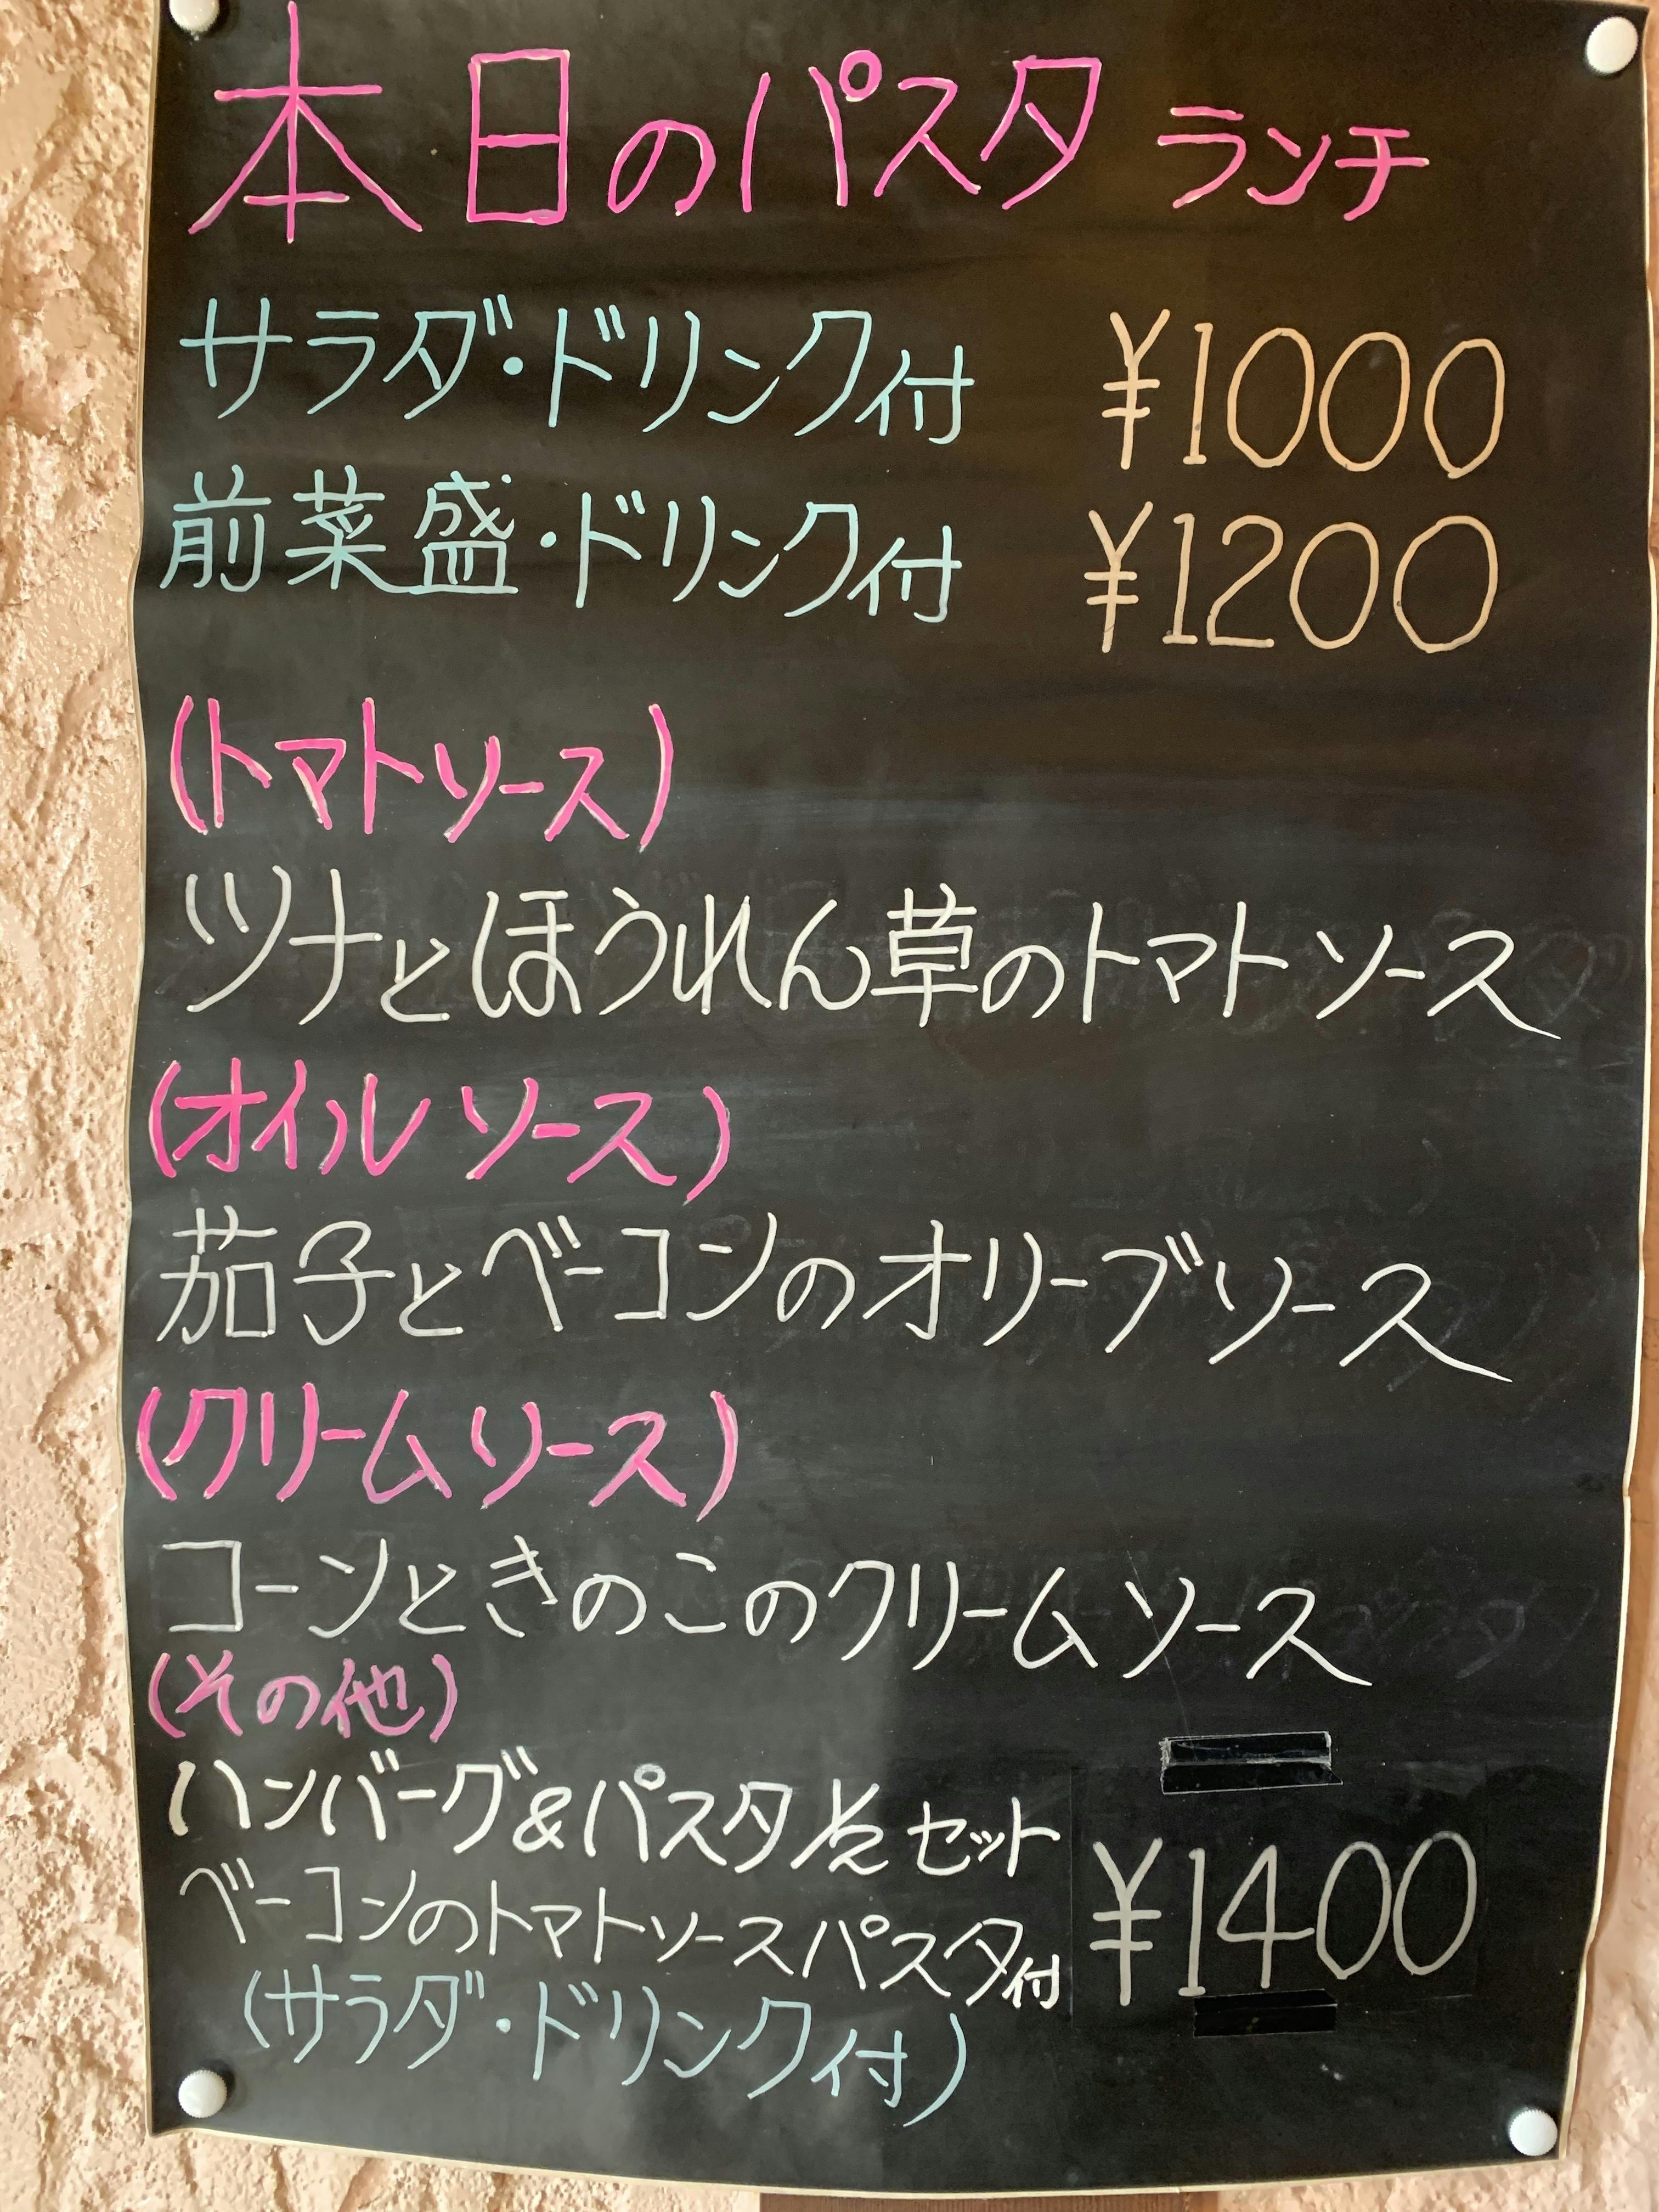 本日のパスタ ランチ
サラダ・ドリンク付 ¥1000
前菜盛・ドリンク付 ¥1200
(トマトソース)
ツナとほうれん草のトマトソース
(オイルソース)
茄子とベーコンのオリーブソース
(クリームソース)
コーンときのこのクリームソース
(その他)
ハンバーグ&パスタ½セット
ベーコンのトマトソースパスタ付 ¥1400
(サラダ・ドリンク付)